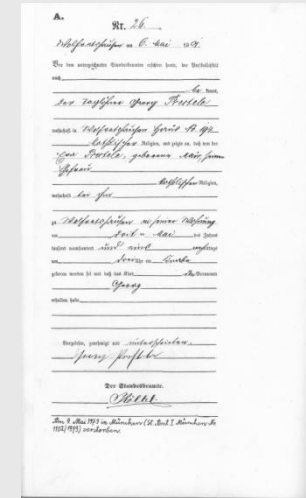 A.
Nr. 26.
Wolfratshausen am 6. Mai 1901.
Vor dem unterzeichneten Standesbeamten erschien heute, der Persönlichkeit
nach
be kannt,
der Taglöhner Georg Prestele
wohnhaft in Wolfratshausen Haus Nr.
katholischer Religion, und zeigte an, daß von der
Eva Prestele, geborene Mair, seiner
Ehefrau
katholischer Religion,
wohnhaft bei ihm
zu Wolfratshausen in seiner Wohnung
am Mai des Jahres
tausend neunhundert und eins
um drei Uhr ein Knabe
geboren worden sei und daß das Kind Vornamen
Georg
erhalten habe
Vorgelesen, genehmigt und unterschrieben
Georg Prestele
Der Standesbeamte.
Am 9. Mai 1973 in München (St. Amt I München Nr.
1112/1973) verstorben.